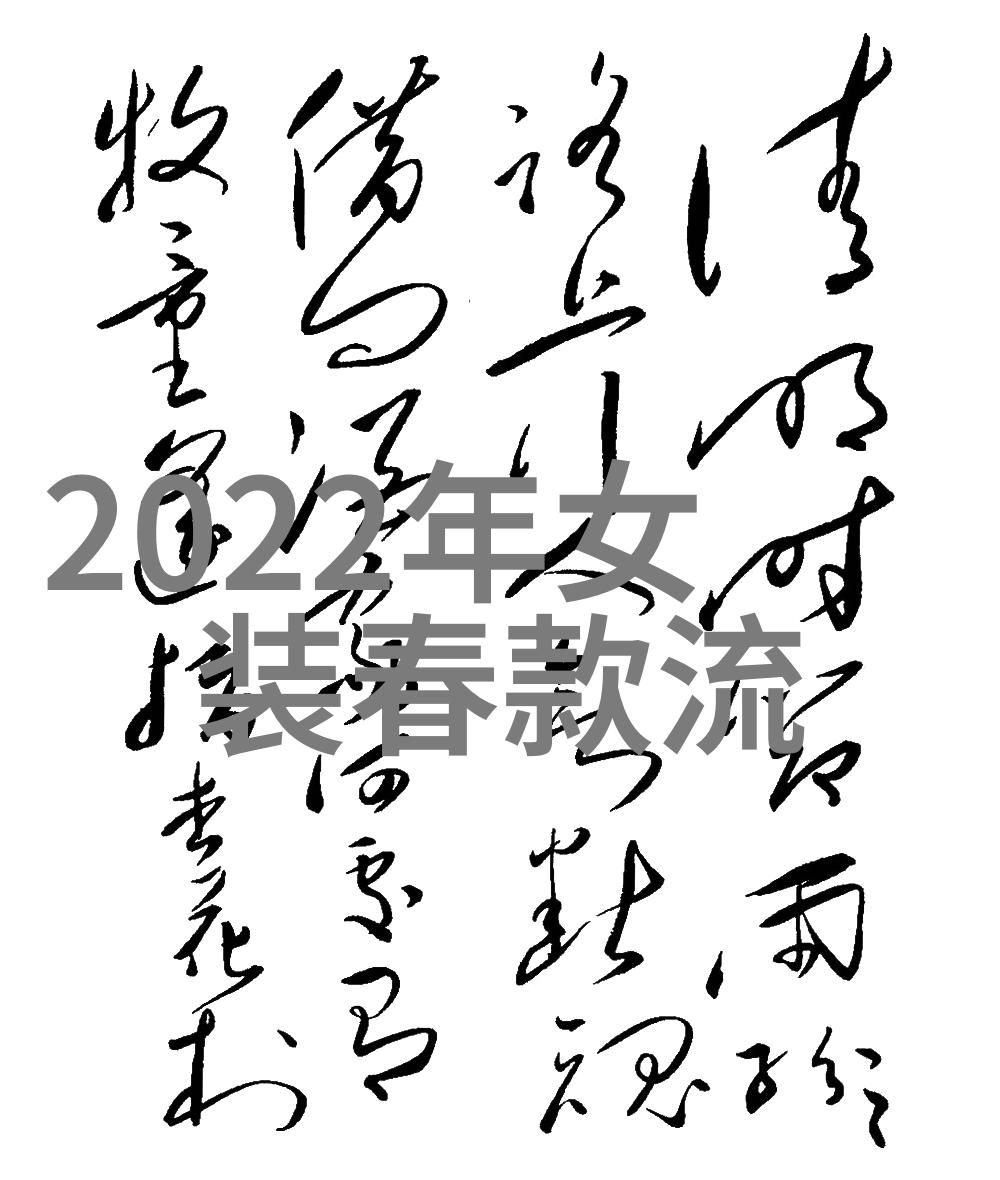 清明时节雨纷纷
路上行人欲断魂
借问酒家何处有
牧童遥指杏花村
2022年女
装春款流